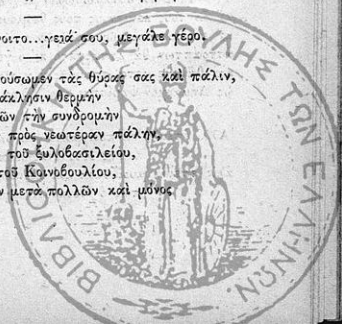 νοιτο...γειά σου, μεγάλε γέρο.
ούσωμεν τὰς θύρας σας καὶ πάλιν,
άκλησιν θερμὴν
ῶν τὴν συνδρομὴν
πρὸς νεωτέραν πάλην,
τοῦ ξυλοβασιλείου,
τοῦ Κοινοβουλίου,
ν μετὰ πολλῶν καὶ μόνος
ΒΙΒΛΙΟΘΗΚΗ ΤΗΣ ΒΟΥΛΗΣ ΤΩΝ ΕΛΛΗΝΩΝ